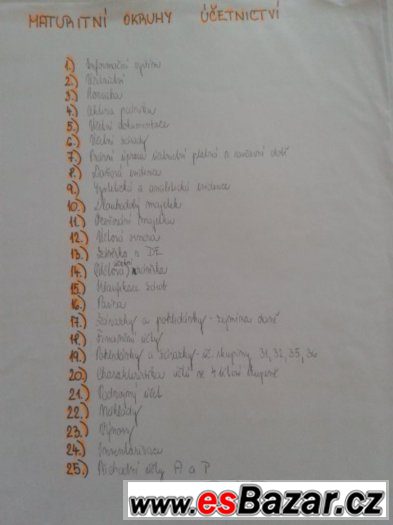 MATURITNÍ OKRUHY ÚČETNICTVÍ
1.) Informační systém
2.)
3.) Rozvaha
4.) Aktiva podniku
5.) Účetní dokumentace
6.) Účetní zásady
7.) Právní úprava účetnictví platná v současné době
8.) Daňová evidence
9.) Syntetická a analytická evidence
10.) Dlouhodobý majetek
11.) Oceňování majetku
12.) Účtová osnova
13.) Účetnictví a DE
14.) Účtová
15.) Klasifikace zásob
16.) Pasiva
17.) Závazky a pohledávky - zejména daně
18.) Finanční účty
19.) Pohledávky a závazky - úč. skupiny 31, 32, 35, 36
20.) Charakteristika účtů ve 4. účtové skupině
21.) Podrozvaž. účet
22.) Náklady
23.) Výnosy
24.) Inventarizace
25.) Přechodné účty A a P
www.esBazar.cz